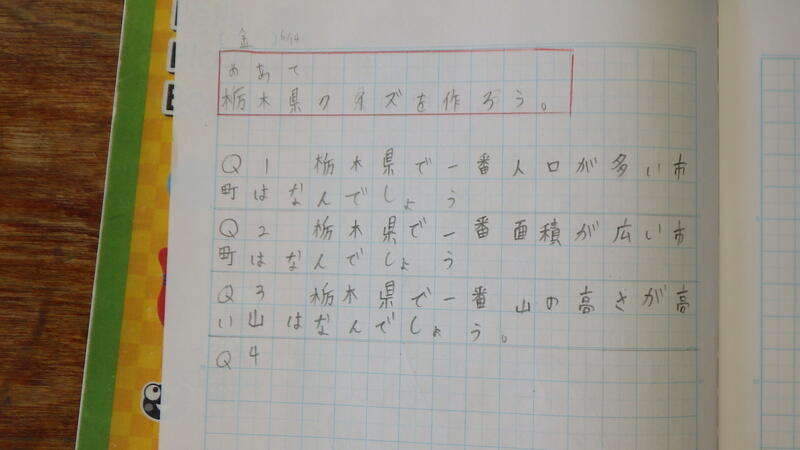 (金)6/14
めあて
栃木県クイズを作ろう。
Q1 栃木県で一番人口が多い市
町はなんでしょう
Q2 栃木県で一番面積が広い市
町はなんでしょう
Q3 栃木県で一番山の高さが高
い山はなんでしょう。
Q4